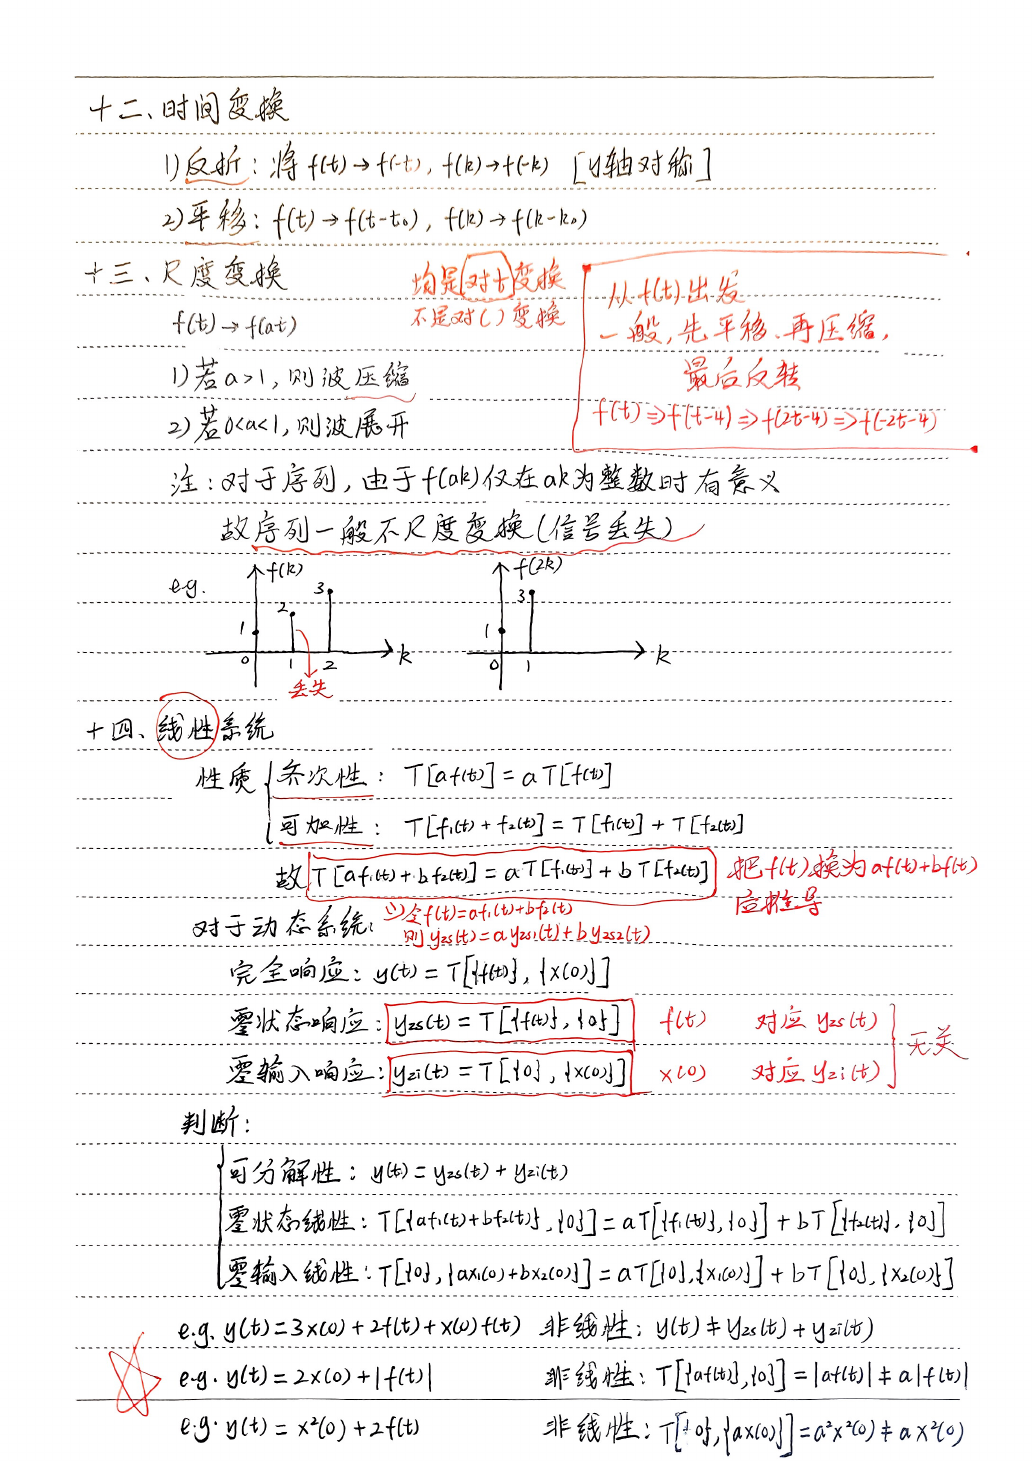 十二、时间变换
1)反折：将f(t)→f(-t)，f(k)→f(-k) [y轴对称]
2)平移：f(t)→f(t-t₀)，f(k)→f(k-k₀)
十三、尺度变换
均是对t变换
不是对( )变换
从f(t)出发
一般，先平移、再压缩，
最后反转
f(t)⇒f(t-4)⇒f(2t-4)⇒f(-2t-4)
f(t)→f(at)
1)若a>1，则波压缩
2)若0<a<1，则波展开
注：对于序列，由于f(ak)仅在ak为整数时有意义
故序列一般不尺度变换(信号丢失)
e.g.
f(k)
3
2
1
0 1 2 k
丢失
f(2k)
3
1
0 1 k
十四、线性系统
性质
齐次性：T[af(t)]=aT[f(t)]
可加性：T[f₁(t)+f₂(t)]=T[f₁(t)]+T[f₂(t)]
故 T[af₁(t)+bf₂(t)]=aT[f₁(t)]+bT[f₂(t)] 把f(t)换为af(t)+bf(t)
应推导
对于动态系统：
令f(t)=af₁(t)+bf₂(t)
则yzs(t)=ayzs1(t)+byzs2(t)
完全响应：y(t)=T[{f(t)},{x(0)}]
零状态响应：yzs(t)=T[{f(t)},{0}] f(t) 对应yzs(t)
零输入响应：yzi(t)=T[{0},{x(0)}] x(0) 对应yzi(t)
无关
判断：
可分解性：y(t)=yzs(t)+yzi(t)
零状态线性：T[{af₁(t)+bf₂(t)},{0}]=aT[{f₁(t)},{0}]+bT[{f₂(t)},{0}]
零输入线性：T[{0},{ax₁(0)+bx₂(0)}]=aT[{0},{x₁(0)}]+bT[{0},{x₂(0)}]
e.g. y(t)=3x(0)+2f(t)+x(0)f(t) 非线性：y(t)≠yzs(t)+yzi(t)
e.g. y(t)=2x(0)+|f(t)| 非线性：T[{af(t)},{0}]=|af(t)|≠a|f(t)|
e.g. y(t)=x²(0)+2f(t) 非线性：T[{0},{ax(0)}]=a²x²(0)≠ax²(0)